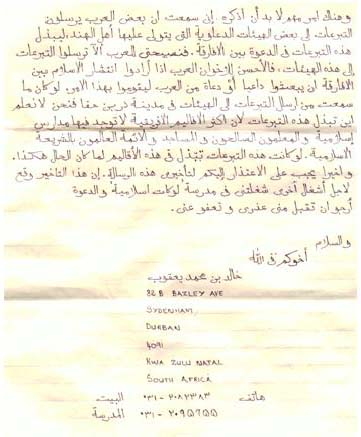 وهناك أمر مهم لا بد أن أذكره. إني سمعت أن بعض العرب يرسلون
التبرعات إلى بعض الهيئات الدعاوية التي يتولى عليها أهل الهند، ليبذل
هذه التبرعات في الدعوة بين الأفارقة. فنصيحتي للعرب ألا ترسلوا التبرعات
إلى هذه الهيئات، فالأحسن لإخوان العرب إذا أرادوا انتشار الإسلام بين
الأفارقة أن يبعثوا داعيا أو دعاة من العرب ليقوموا بهذا الأمر. لو كان ما
سمعت من إرسال التبرعات إلى الهيئات في مدينة دربن حقا فنحن لا نعلم
أين تبذل هذه التبرعات لأن أكثر الأقاليم الإفريقية لا توجد فيها مدارس
إسلامية والمعلمون الصالحون والمساجد والأئمة العالمون بالشريعة
الإسلامية. لو كانت هذه التبرعات تبذل في هذه الأقاليم لما كان الحال هكذا.
وأخيرا يجب علي الاعتذار إليكم لتأخيري هذه الرسالة. إن هذا التأخير وقع
لأجل أشغال أخرى شغلتني في مدرسة "لوكات إسلامية" والدعوة
أرجو أن تقبل مني عذري وتعفو عني.
والسلام
أخوكم في الله
خالد بن محمد يعقوب
82 B BAZLEY AVE
SYDENHAM
DURBAN
4091
KWA ZULU NATAL
SOUTH AFRICA
هاتف ٠٣١ - ٢٠٨٢٣٨٣ البيت
٠٣١ - ٢٠٩٥٢٥٥ المدرسة